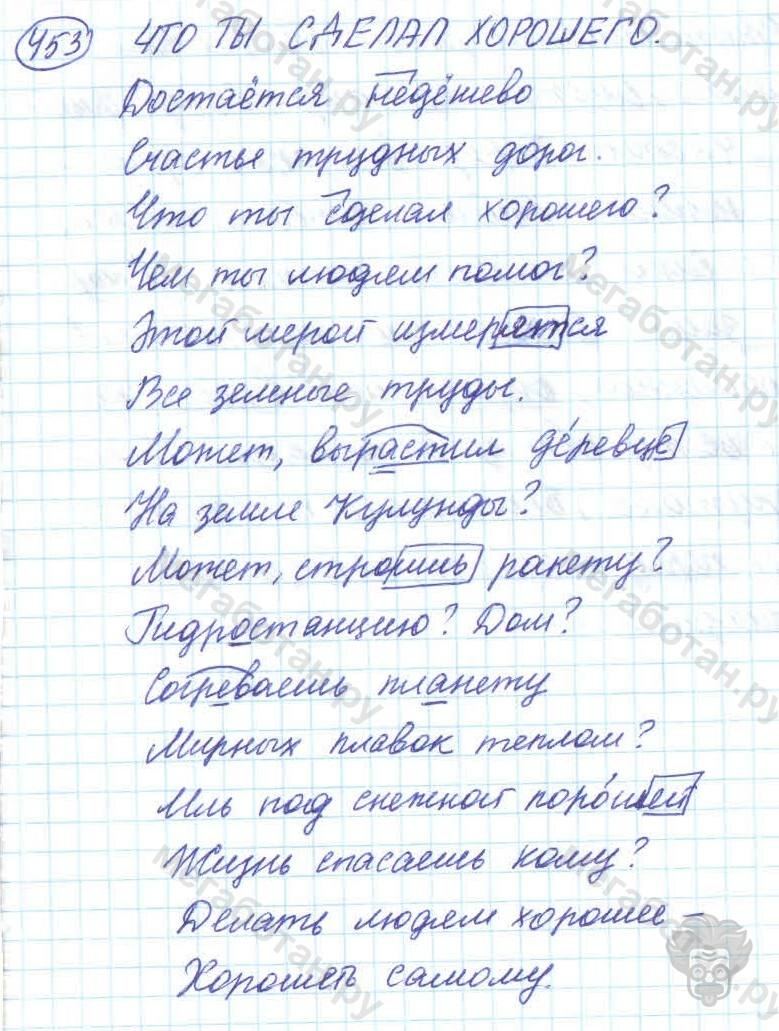 453 ЧТО ТЫ СДЕЛАЛ ХОРОШЕГО.
Достаётся недёшево
Счастье трудных дорог.
Что ты сделал хорошего?
Чем ты людям помог?
Этой мерой измерятся
Все земные труды.
Может, вырастил де́ревце
На земле Кулунды?
Может, строишь ракету?
Гидростанцию? Дом?
Согреваешь планету
Мирных плавок теплом?
Иль под снежной поро́шей
Жизнь спасаешь кому?
Делать людям хорошее –
Хорошеть самому.
мегаботан.ру